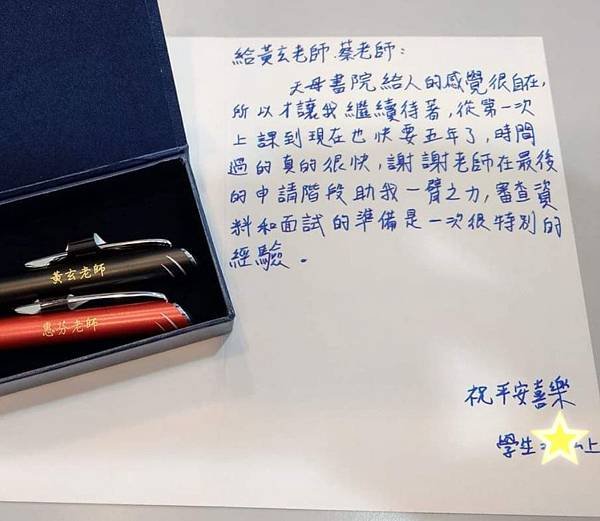 給黃玄老師.蔡老師:
天母書院給人的感覺很自在,
所以才讓我繼續待著,從第一次
上課到現在也快要五年了,時間
過的真的很快,謝謝老師在最後
的申請階段助我一臂之力,審查資
料和面試的準備是一次很特別的
經驗。
祝平安喜樂
學生:
上
黃玄老師
惠芬老師